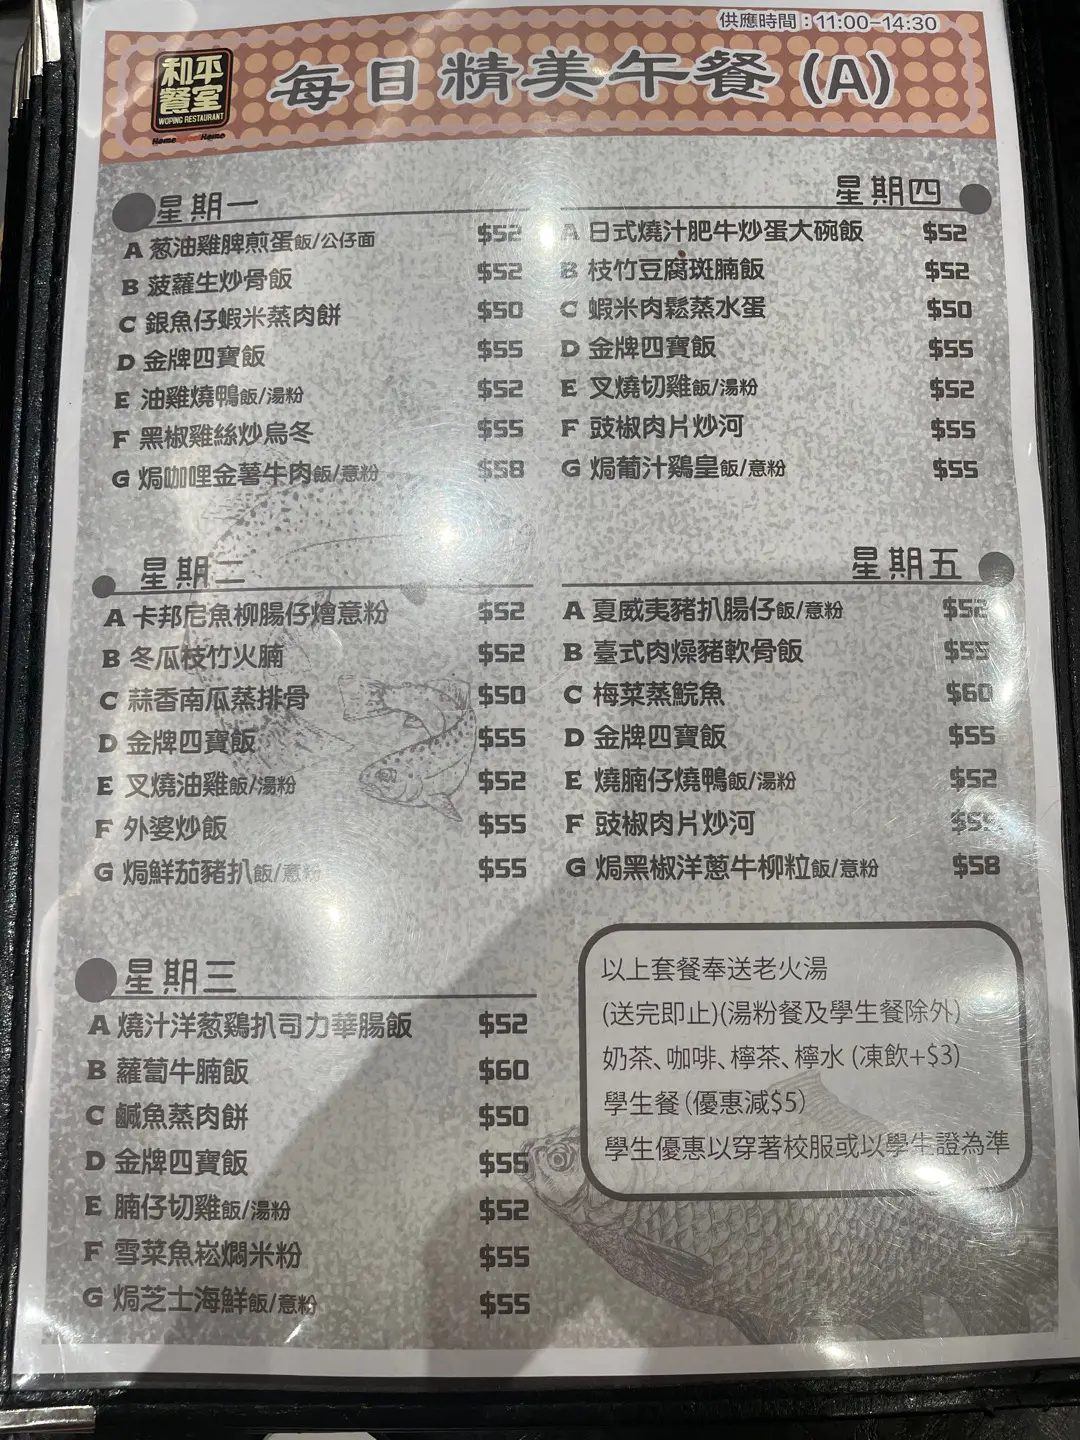 供應時間：11:00-14:30
和平
餐室
WOPING RESTAURANT
每日精美午餐(A)
星期一
A 葱油雞脾煎蛋飯/公仔面 $52
B 菠蘿生炒骨飯 $52
C 銀魚仔蝦米蒸肉餅 $50
D 金牌四寶飯 $55
E 油雞燒鴨飯/湯粉 $52
F 黑椒雞絲炒烏冬 $55
G 焗咖哩金薯牛肉飯/意粉 $58
星期二
A 卡邦尼魚柳腸仔燴意粉 $52
B 冬瓜枝竹火腩 $52
C 蒜香南瓜蒸排骨 $50
D 金牌四寶飯 $55
E 叉燒油雞飯/湯粉 $52
F 外婆炒飯 $55
G 焗鮮茄豬扒飯/意粉 $55
星期三
A 燒汁洋葱鷄扒司力華腸飯 $52
B 蘿蔔牛腩飯 $60
C 鹹魚蒸肉餅 $50
D 金牌四寶飯 $55
E 腩仔切雞飯/湯粉 $52
F 雪菜魚崧燜米粉 $55
G 焗芝士海鮮飯/意粉 $55
星期四
A 日式燒汁肥牛炒蛋大碗飯 $52
B 枝竹豆腐斑腩飯 $52
C 蝦米肉鬆蒸水蛋 $50
D 金牌四寶飯 $55
E 叉燒切雞飯/湯粉 $52
F 豉椒肉片炒河 $55
G 焗葡汁鷄皇飯/意粉 $55
星期五
A 夏威夷豬扒腸仔飯/意粉 $52
B 臺式肉燥豬軟骨飯 $55
C 梅菜蒸鯇魚 $60
D 金牌四寶飯 $55
E 燒腩仔燒鴨飯/湯粉 $52
F 豉椒肉片炒河 $55
G 焗黑椒洋蔥牛柳粒飯/意粉 $58
以上套餐奉送老火湯
(送完即止)(湯粉餐及學生餐除外)
奶茶、咖啡、檸茶、檸水 (凍飲+$3)
學生餐(優惠減$5)
學生優惠以穿著校服或以學生證為準